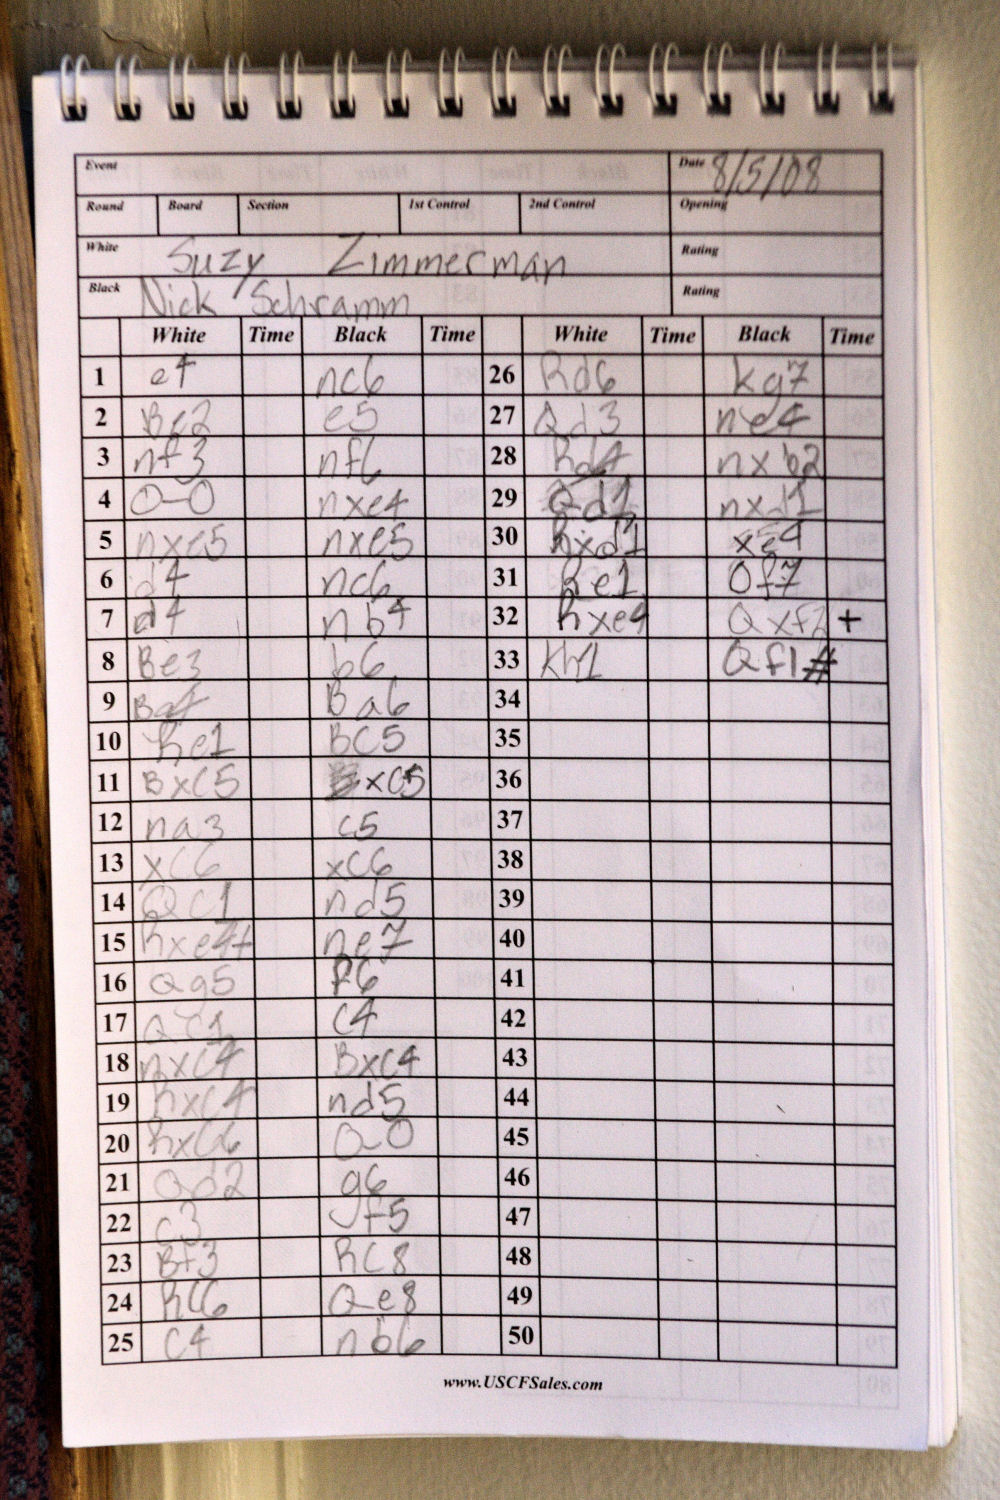 Event Date 8/5/08
Round Board Section 1st Control 2nd Control Opening
White Suzy Zimmerman Rating
Black Nick Schramm Rating
White Time Black Time White Time Black Time
1 e4 nc6 26 Rd6 kg7
2 Be2 e5 27 Qd3 ne4
3 nf3 nf6 28 Rd4 nxb2
4 O-O nxe4 29 Qd1 nxd1
5 nxe5 nxe5 30 Rxd1 xe4
6 d4 nc6 31 Re1 Qf7
7 d4 nb4 32 Rxe4 Qxf2+
8 Be3 b6 33 Kh1 Qf1#
9 Ba6 34
10 Re1 BC5 35
11 BxC5 xC5 36
12 na3 c5 37
13 xC6 xC6 38
14 QC1 nd5 39
15 Rxe4+ ne7 40
16 Qg5 f6 41
17 QC1 c4 42
18 nxC4 BxC4 43
19 RxC4 nd5 44
20 RxC6 O-O 45
21 Qd2 g6 46
22 c3 f5 47
23 Bf3 RC8 48
24 RC6 Qe8 49
25 C4 nb6 50
www.USCFSales.com